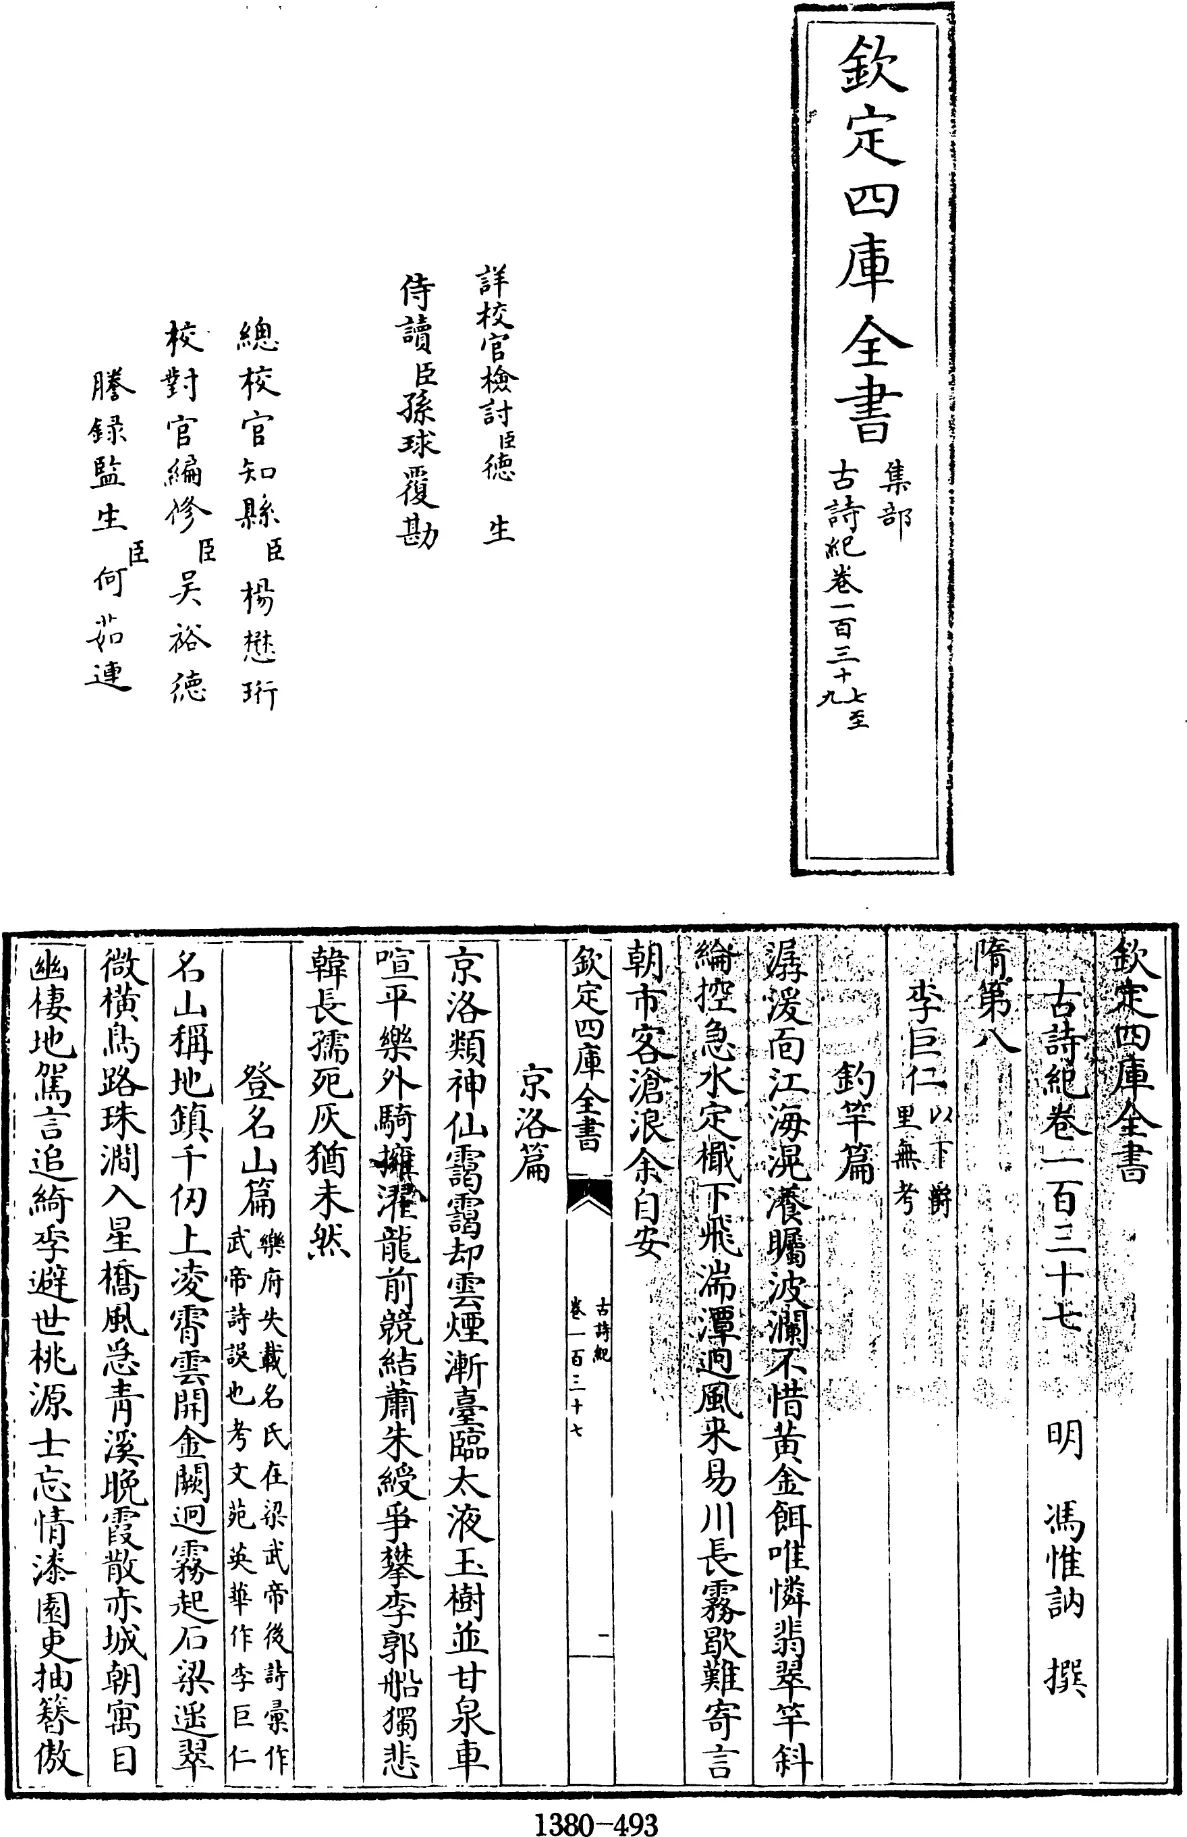 欽定四庫全書
集部
古詩紀卷一百三十七至
九
詳校官檢討臣德生
侍讀臣孫球覆勘
總校官知縣臣楊懋珩
校對官編修臣吴裕德
謄録監生臣何茹連
欽定四庫全書
古詩紀卷一百三十七 明 馮惟訥 撰
隋第八
李巨仁以下爵里無考
釣竿篇
潺湲面江海滉瀁矚波瀾不惜黄金餌唯憐翡翠竿斜
綸控急水定檝下飛湍潭迥風来易川長霧歇難寄言
朝市客滄浪余自安
欽定四庫全書 古詩紀 卷一百三十七 一
京洛篇
京洛類神仙靄靄却雲煙漸臺臨太液玉樹並甘泉車
喧平樂外騎擁濯龍前競結蕭朱綬爭攀李郭船獨悲
韓長孺死灰猶未然
登名山篇樂府失載名氏在梁武帝後詩彚作武帝詩誤也考文苑英華作李巨仁
名山稱地鎮千仞上凌霄雲開金闕迥霧起石梁遥翠
微橫鳥路珠澗入星橋風急青溪晚霞散赤城朝寓目
幽棲地駕言追綺季避世桃源士忘情漆園吏抽簪傲
1380-493